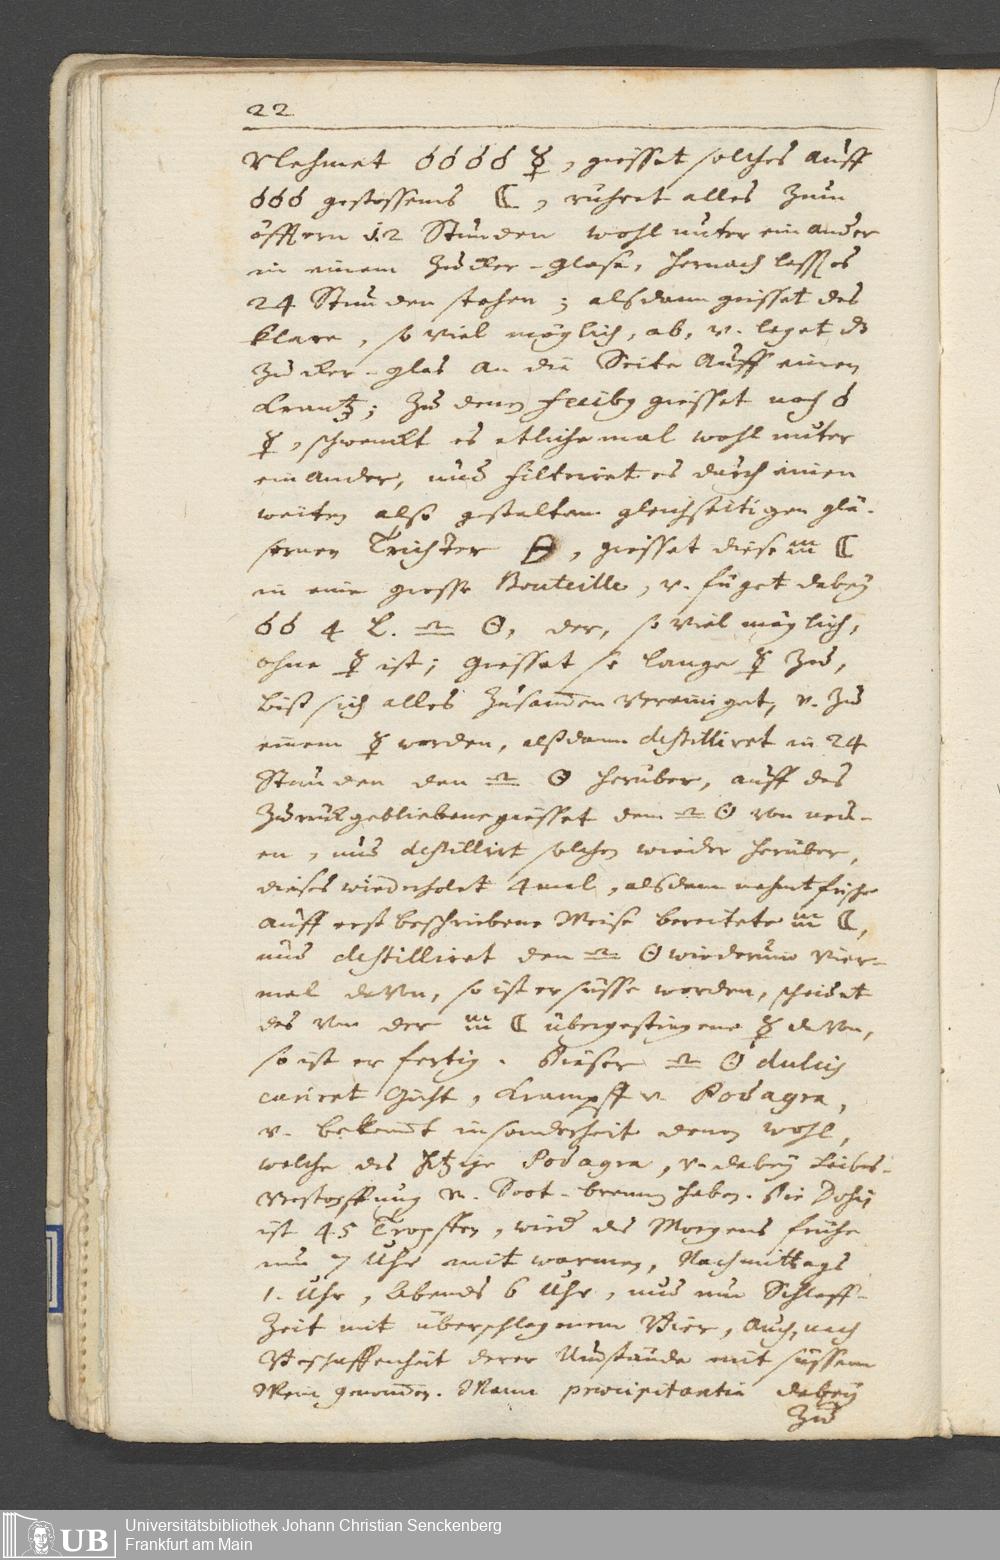 22
Nehmet ℔℔℔℔ ☿, giesset solches auff
℔℔℔ gestossenes ℂ, rühret alles zum
öfftern 12 Stunden wohl unter ein ander
in einem Zucker-glase, hernach lasst es
24 Stunden stehen; alsdann giesset das
klare, so viel möglich, ab, v. leget d
Zucker-glas an die Seite auff einen
Krantz; zu denen Fecibus giesset noch ℔
☿, schwenckt es etliche mal wohl unter
ein ander, und filtriret es durch einen
weiten also gestalten gleichseitigen glä-
sernen Trichter, giesset diese ♒ ℂ
in eine grosse Bouteille, v. füget dabey
℔℔ 4 L. ♎ Θ, der, so viel möglich,
ohne ☿ ist; giesset so lange ☿ zu,
biß sich alles zusammen vereiniget, v. zu
einem ☿ worden, alßdann destilliret in 24
Stunden den ♎ Θ herüber, auff das
zurückgebliebene giesset den ♎ Θ von neu-
en, und destillirt solchen wieder herüber,
dieses wiederholet 4 mal, alsdann nehmt frische
auff erst beschriebene Weise bereitete ♒ ℂ,
und destilliret den ♎ Θ wiederum vier-
mal davon, so ist er süsse worden, scheidet
das von der ♒ ℂ übergestiegene ☿ davon,
so ist er fertig. Dieser ♎ Θ dulcis
curiret Gicht, Krampff v. Podagra,
v. bekomt insonderheit denen wohl,
welche das hitzige Podagra, v. dabey Leibes-
verstopffung v. Soot-brennen haben. Die Dosis
ist 45 Tropffen, wird des Morgens frühe
um 7 Uhr mit warmen, Nachmittags
1. Uhr, Abends 6 Uhr, und um Schlaff-
Zeit mit überschlagenem Bier, auch, nach
Beschaffenheit derer Umstände mit süssem
Wein genommen. Wann præcipitantia dabey
zu
Universitätsbibliothek Johann Christian Senckenberg
Frankfurt am Main
UB